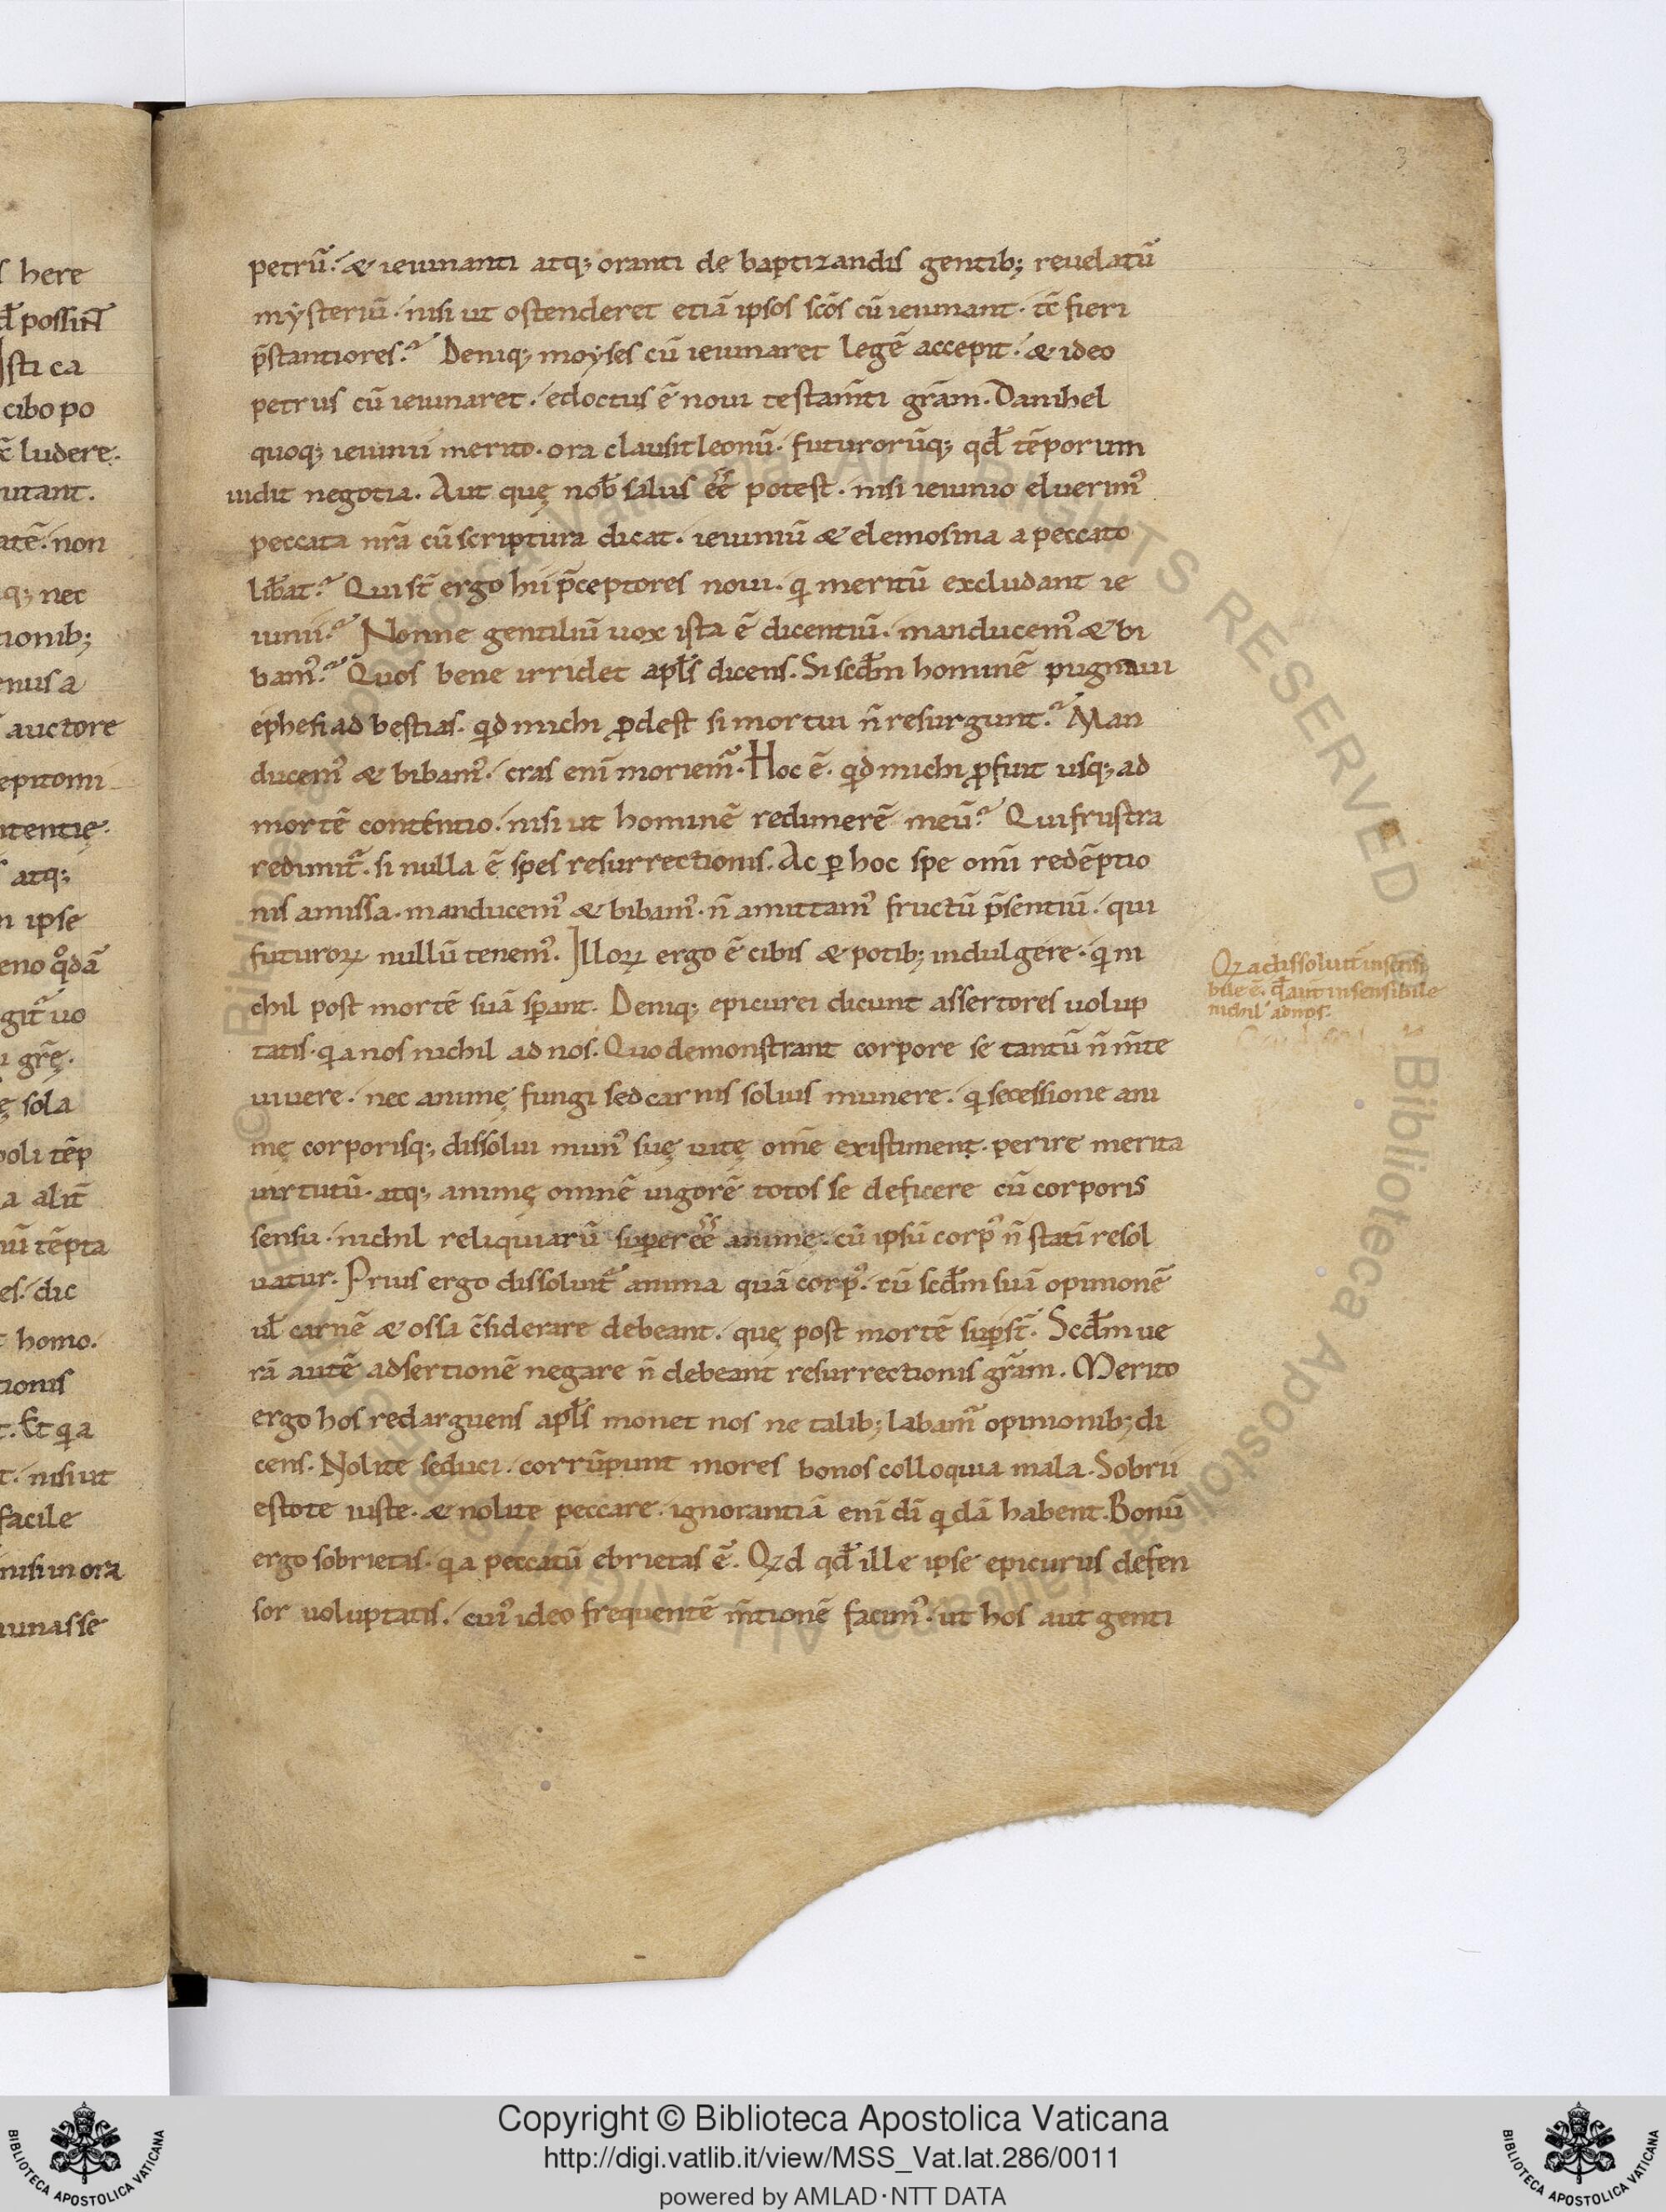 s here
đ possiN̄t
Isti ca
cibo po
c̄ ludere.
utant.
atē. non
q; nec
tionib;
enus a
auctore
epitomi
tentię.
atq;
n ipse
eno qͦdā
git᷑ uo
gr̄ę.
ę sola
poli tēp
a alit᷑
iū tēpta
es. dic
t homo.
tionis
t. Et qa
t. nisi ut
facile
nisi in ora
iunasse
3
petrū. & ieiunanti atq; oranti de baptizandis gentib; reuelatū
mysteriū. nisi ut ostenderet etiā ipsos sc̄os cū ieiunant. tc̄ fieri
p̄stantiores? Deniq; moyses cū ieiunaret legē accepit. & ideo
petrus cū ieiunaret. edoctus ē noui testam̄ti gr̄am. Danihel
quoq; ieiunii merito. ora clausit leonū. futurorūq; qđ tēporum
uidit negotia. Aut quę nob̄ salus ee᷑ potest. nisi ieiunio eluerim᷒
peccata nr̄a cū scriptura dicat. ieiuniū & elemosina a peccato
lib̄at? Qui st̄ ergo hii p̄ceptores noui. qͥ meritū excludant ie
iunii? Nonne gentiliū uox ista ē dicentiū. manducem᷒ & bi
bam᷒? Quos bene irridet apl̄s dicens. Si scđm hominē pugnaui
ephesi ad bestias. qͥd michi ꝓdest si mortui n̄ resurgunt? Man
ducem᷒ & bibam᷒. cras eni᷑ moriem᷑. Hoc ē. qͥd michi ꝓfuit usq; ad
mortē contentio. nisi ut hominē redimerē meū? Qui frustra
redimit᷑. si nulla ē spes resurrectionis. Ac ꝑ hoc spe om̄i redēptio
nis amissa. manducem᷒ & bibam᷒. n̄ amittam᷒ fructū p̄sentiū. qui
futuroꝝ nullū tenem᷒. Illoꝝ ergo ē cibis & potib; indulgere. qͥ ni
chil post mortē suā sꝑant. Deniq; epicurei dicunt assertores uolup
tatis. qͥa nos nichil ad nos. Quo demonstrant corpore se tantū n̄ m̄te
uiuere. nec animę fungi sed carnis solius munere. qͥ secessione ani
mę corporisq; dissolui mun᷒ suę uitę om̄e existiment. perire merita
uirtutū. atq; animę omnē uigorē totos se deficere cū corporis
sensu. nichil reliquiarū superee᷑ animę. cū ipsū corp᷒ n̄ stati᷑ resol
uatur. Prius ergo dissoluit᷑ anima quā corp᷒. cū scđm suā opinionē
ul̄ carnē & ossa c̄siderare debeant. quę post mortē suꝑst̄. Scđm ue
rā autē adsertionē negare n̄ debeant resurrectionis gr̄am. Merito
ergo hos redarguens apl̄s monet nos ne talib; labam᷑ opinionib; di
cens. Nolite seduci. corrūpunt mores bonos colloquia mala. Sobrii
estote iuste. & nolite peccare. ignorantiā eni᷑ dī qͥdā habent. Bonū
ergo sobrietas. qͥa peccatū ebrietas ē. Qͥd qđ ille ipse epicurus defen
sor uoluptatis. cui᷒ ideo frequentē m̄tionē facim᷒. ut hos aut genti
Qͥa dissoluit᷑ insensi
bile ē. qđ aut insensibile
nichil ad nos.
Copyright © Biblioteca Apostolica Vaticana
http://digi.vatlib.it/view/MSS_Vat.lat.286/0011
powered by AMLAD·NTT DATA
BIBLIOTECA APOSTOLICA VATICANA
BIBLIOTECA APOSTOLICA VATICANA